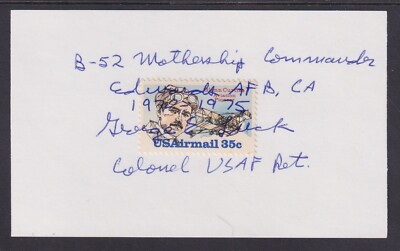 B-52 Mothership Commander
Edwards AFB, CA
1972-1975
George
Colonel USAF Ret.
USAirmail 35c